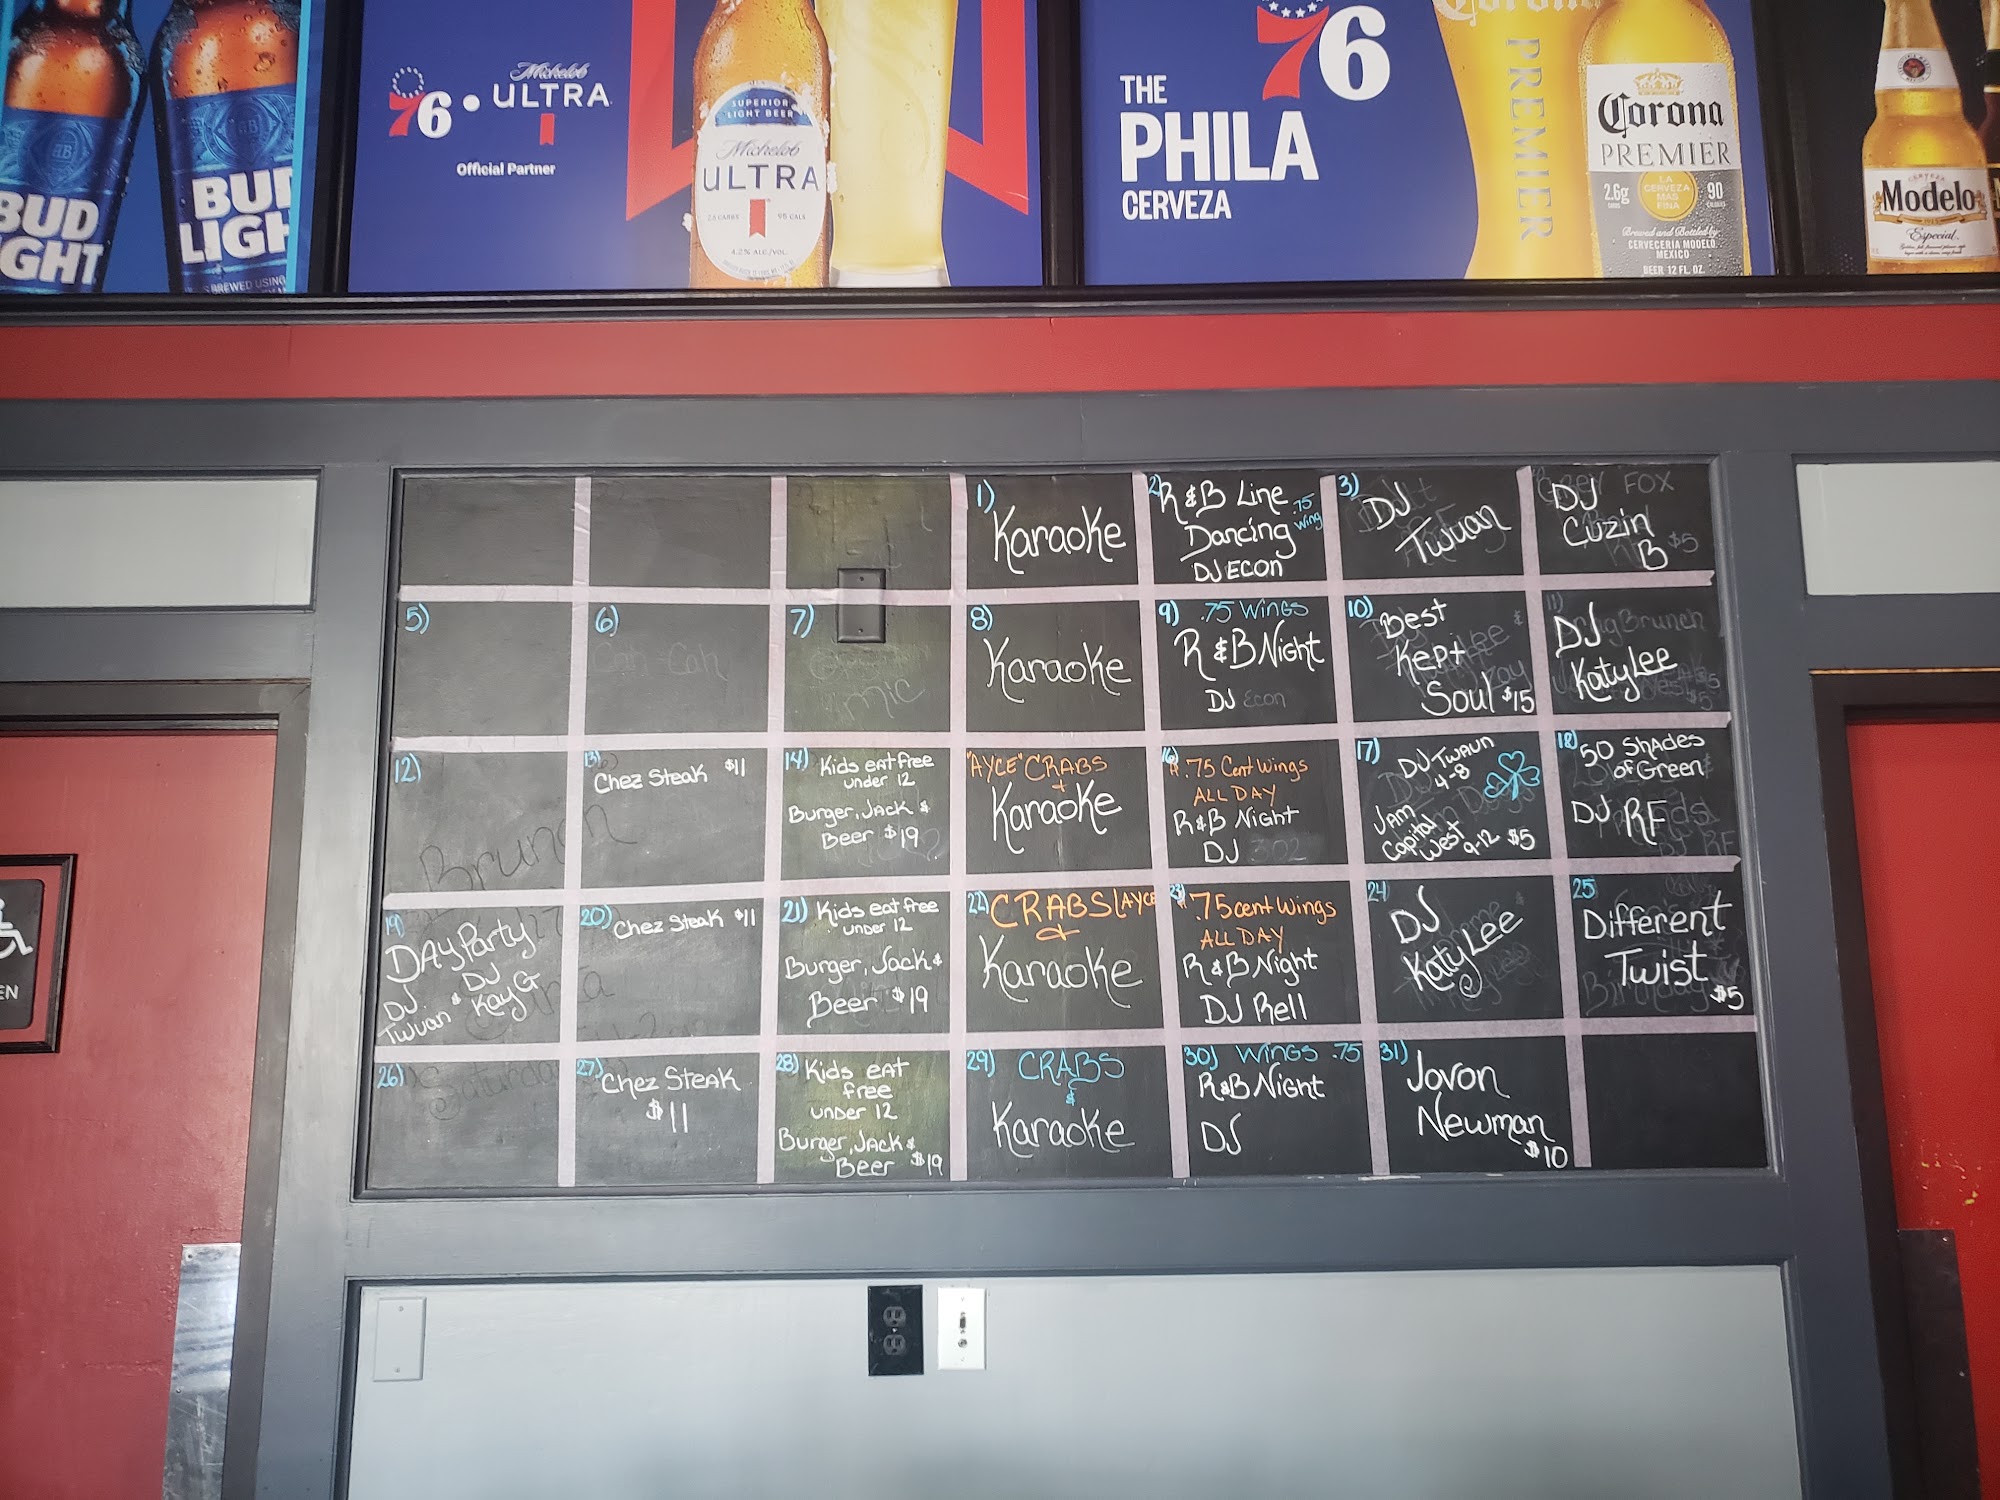 BUD
LIGHT
BUD
LIGH
BREWED USING
76
Michelob
ULTRA
Official Partner
SUPERIOR
LIGHT BEER
Michelob
ULTRA
2.6 CARBS 95 CALS
4.2% ALC/VOL.
76
THE
PHILA
CERVEZA
Corona
PREMIER
Corona
PREMIER
2.6g
LA
CERVEZA
MAS
FINA
90
Brewed and Bottled by:
CERVECERIA MODELO
MEXICO
BEER 12 FL. OZ.
Modelo
Especial
1)
Karaoke
2)
R & B Line
Dancing
DJ Econ
.75
Wing
3)
DJ
Twuan
DJ
Cuzin
B
FOX
$5
5)
6)
7)
mic
8)
Karaoke
9) .75 Wings
R & B Night
DJ Econ
10) Best
Kept
Soul $15
11)
DJ
KatyLee
Brunch
12)
Brunch
13)
Chez Steak $11
14) Kids eat free
under 12
Burger, Jack &
Beer $19
"AYCE" CRABS
+
Karaoke
16)
.75 Cent Wings
ALL DAY
R & B Night
DJ 302
17) DJ Twaun
4-8
Jam
Capital
West 9-12 $5
18) 50 Shades
of Green
DJ RF
19)
DAY Party
DJ DJ
Twuan & KayG
20) Chez Steak $11
21) Kids eat free
under 12
Burger, Jack &
Beer $19
22) CRABS (AYCE
&
Karaoke
23) .75 cent Wings
ALL DAY
R & B Night
DJ Rell
24)
DJ
KatyLee
25
Different
Twist
$5
26)
Saturday
27) Chez Steak
$11
28) Kids eat
free
under 12
Burger, Jack &
Beer $19
29) CRABS
&
Karaoke
30) Wings .75
R & B Night
DJ
31)
Jovon
Newman
$10
EN